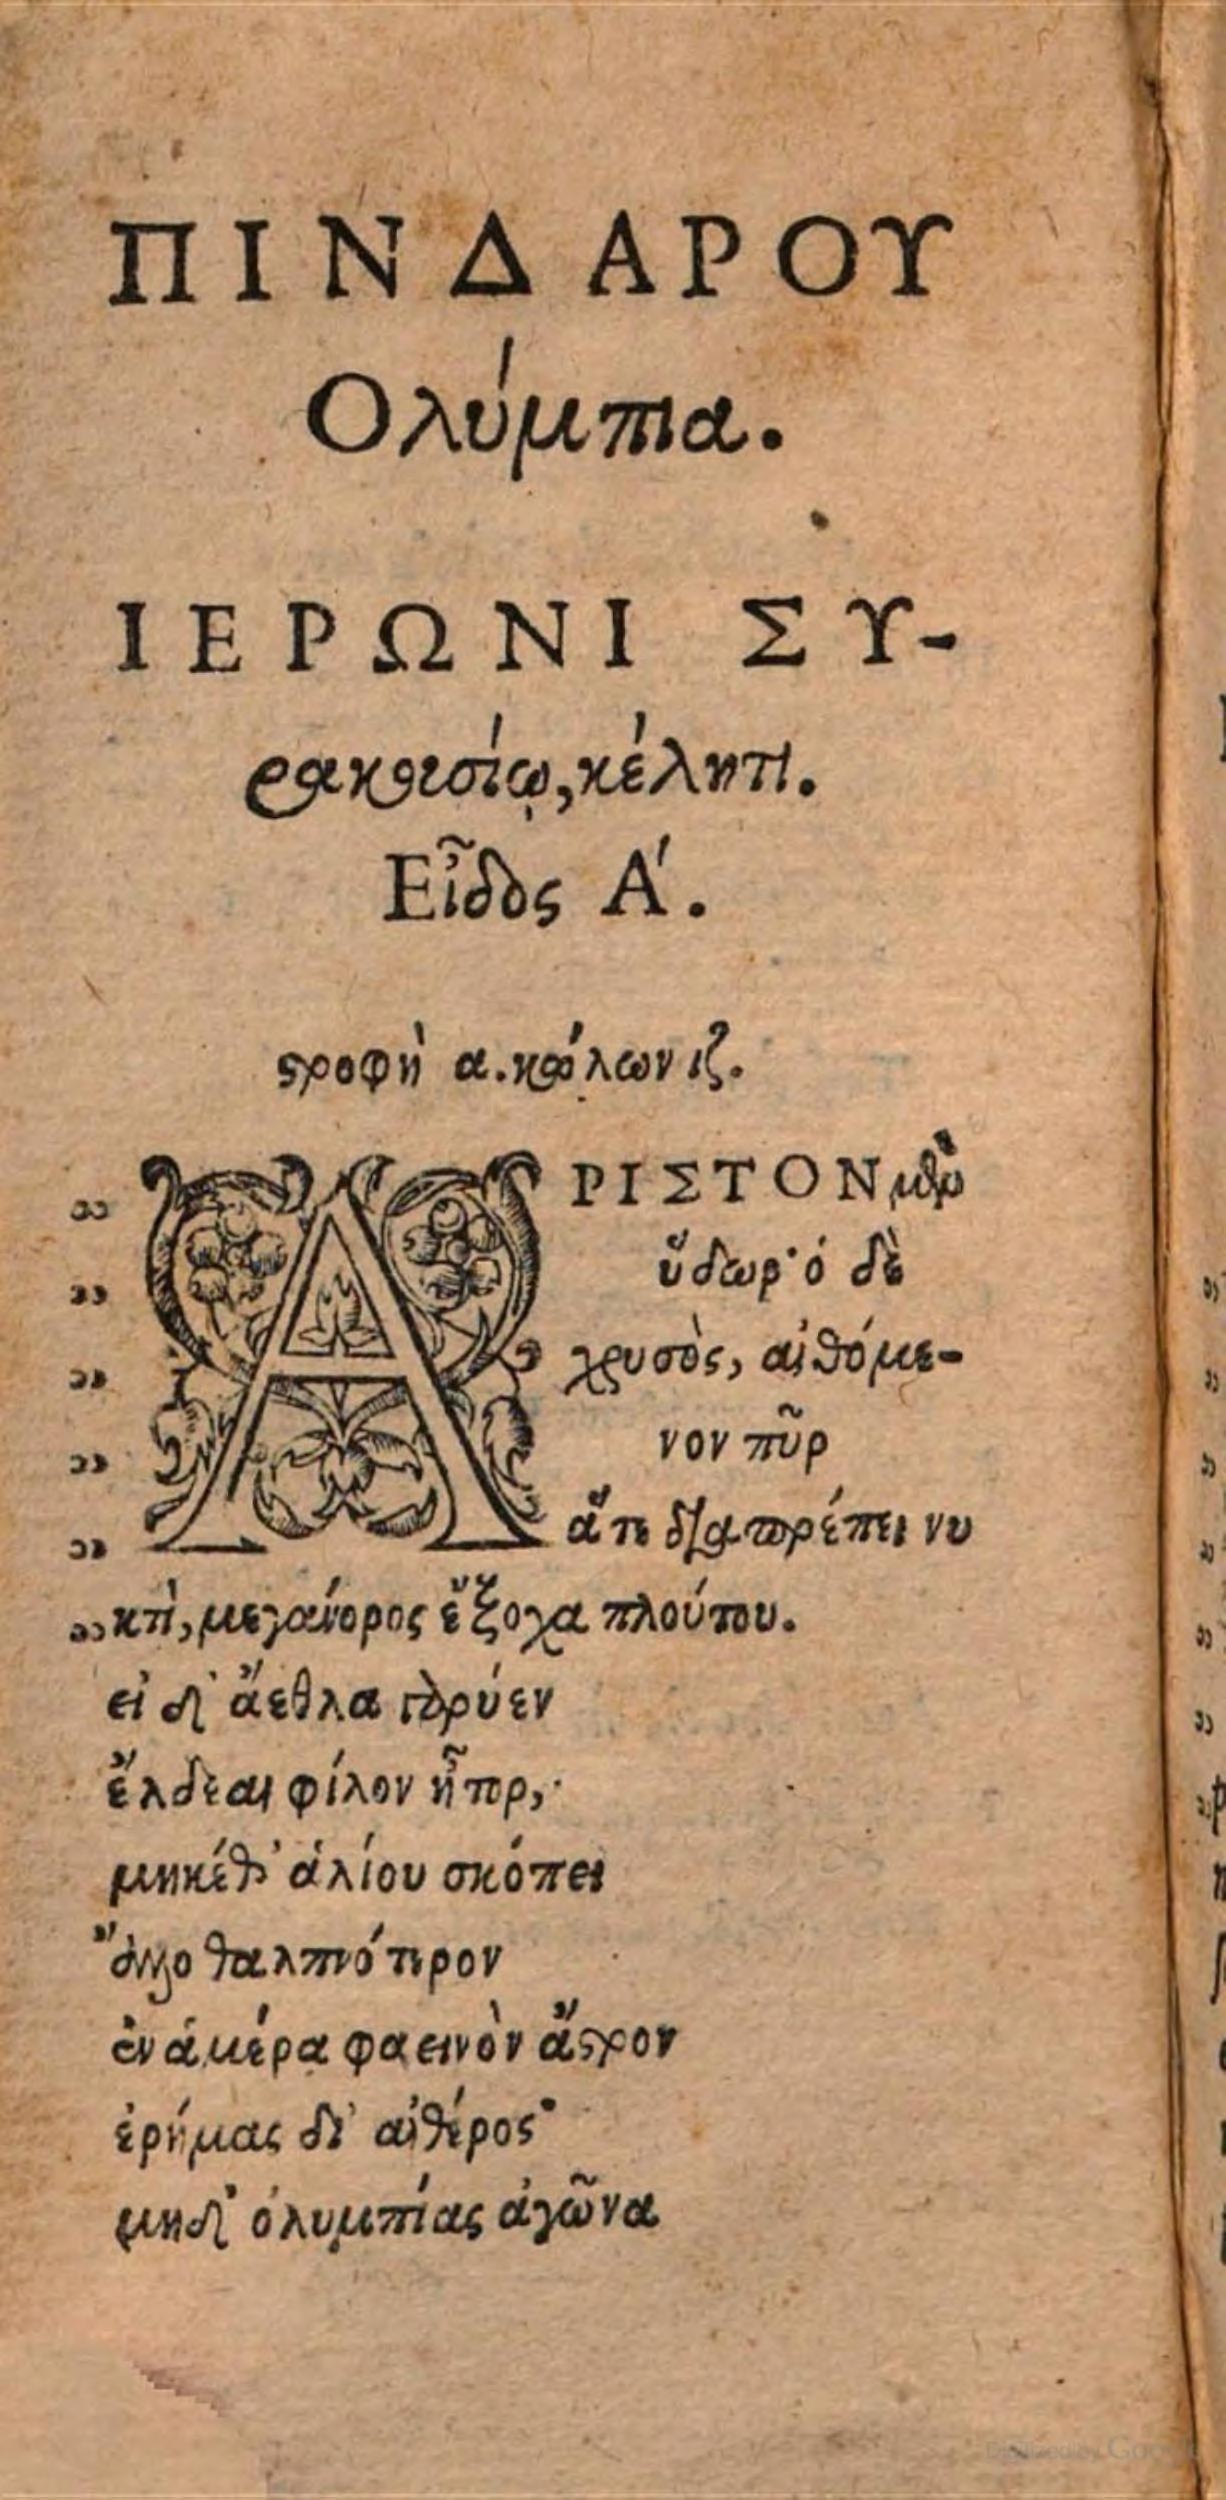 ΠΙΝΔΑΡΟΥ
Ολύμπια.
ΙΕΡΩΝΙ ΣΥ-
ρακουσίῳ, κέλητι.
Εἶδος Α΄.
στροφὴ α. κώλων ιζ.
ΑΡΙΣΤΟΝ μὲν
ὕδωρ· ὁ δὲ
χρυσὸς, αἰθόμε-
νον πῦρ
ἅτε διαπρέπει νυ
κτὶ, μεγάνορος ἔξοχα πλούτου.
εἰ δ' ἄεθλα γαρύεν
ἔλδεαι φίλον ἦτορ,
μηκέθ' ἁλίου σκόπει
ἄλλο θαλπνότερον
ἐν ἁμέρα φαεινὸν ἄστρον
ἐρήμας δι' αἰθέρος·
μηδ' ὀλυμπίας ἀγῶνα
Digitized by Google